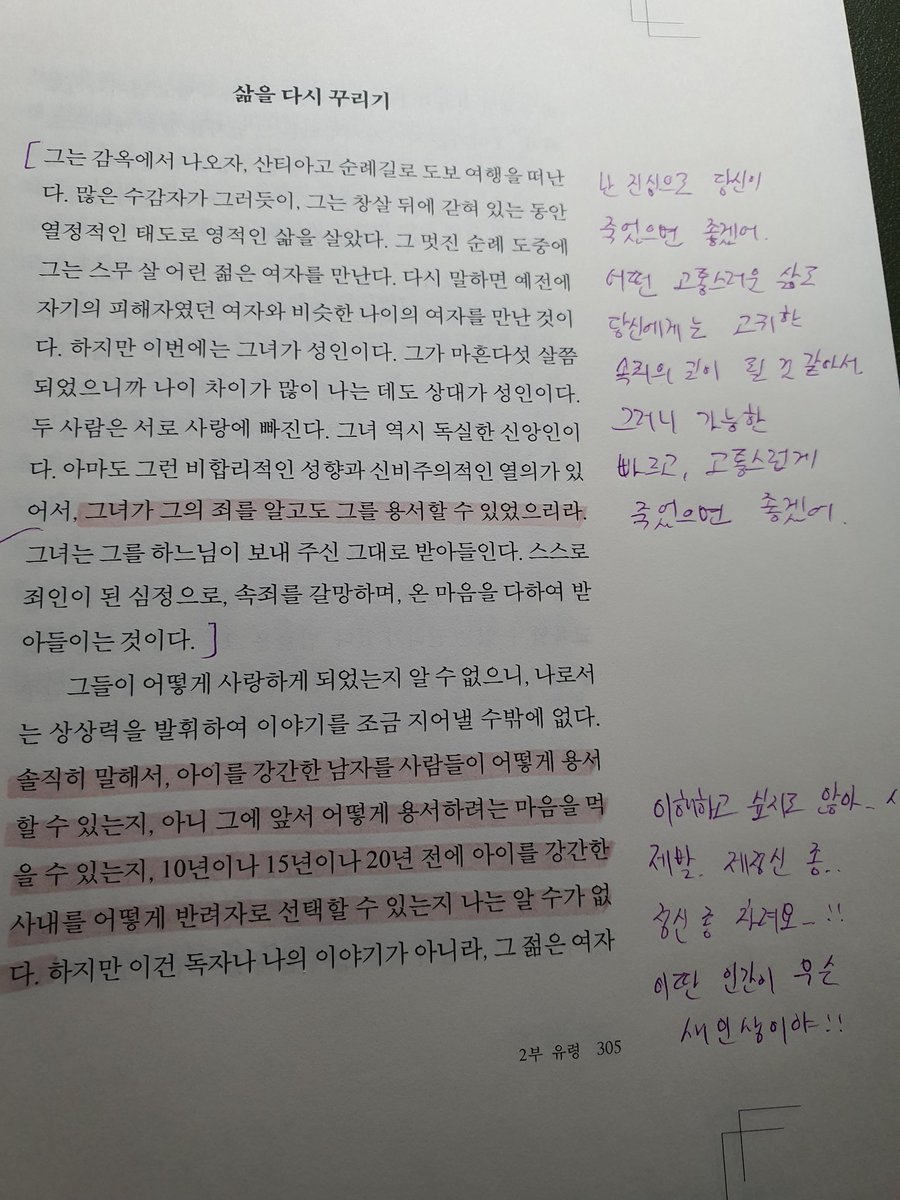 삶을 다시 꾸리기
[ 그는 감옥에서 나오자, 산티아고 순례길로 도보 여행을 떠난
다. 많은 수감자가 그러듯이, 그는 창살 뒤에 갇혀 있는 동안
열정적인 태도로 영적인 삶을 살았다. 그 멋진 순례 도중에
그는 스무 살 어린 젊은 여자를 만난다. 다시 말하면 예전에
자기의 피해자였던 여자와 비슷한 나이의 여자를 만난 것이
다. 하지만 이번에는 그녀가 성인이다. 그가 마흔다섯 살쯤
되었으니까 나이 차이가 많이 나는 데도 상대가 성인이다.
두 사람은 서로 사랑에 빠진다. 그녀 역시 독실한 신앙인이
다. 아마도 그런 비합리적인 성향과 신비주의적인 열의가 있
어서, 그녀가 그의 죄를 알고도 그를 용서할 수 있었으리라.
그녀는 그를 하느님이 보내 주신 그대로 받아들인다. 스스로
죄인이 된 심정으로, 속죄를 갈망하며, 온 마음을 다하여 받
아들이는 것이다. ]
그들이 어떻게 사랑하게 되었는지 알 수 없으니, 나로서
는 상상력을 발휘하여 이야기를 조금 지어낼 수밖에 없다.
솔직히 말해서, 아이를 강간한 남자를 사람들이 어떻게 용서
할 수 있는지, 아니 그에 앞서 어떻게 용서하려는 마음을 먹
을 수 있는지, 10년이나 15년이나 20년 전에 아이를 강간한
사내를 어떻게 반려자로 선택할 수 있는지 나는 알 수가 없
다. 하지만 이건 독자나 나의 이야기가 아니라, 그 젊은 여자
2부 유령 305
난 진심으로 당신이
죽었으면 좋겠어.
어떤 고통스러운 삶도
당신에게는 고귀한
속죄의 길이 될 것 같아서
그러니 가능한
빠르고, 고통스럽게
죽었으면 좋겠어.
이해하고 싶지도 않아..
제발. 제정신 좀..
정신 좀 차려요..!!
이딴 인간이 무슨
새 인생이야!!